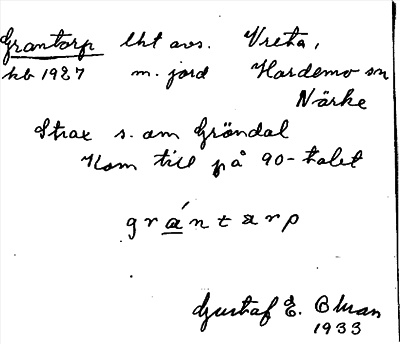 Grantorp lht avs. Vreta,
kb 1927 m. jord Hardemo sn
Närke
Strax s. om Gröndal
Kom till på 90-talet
grántärp
Gustaf E.
1933